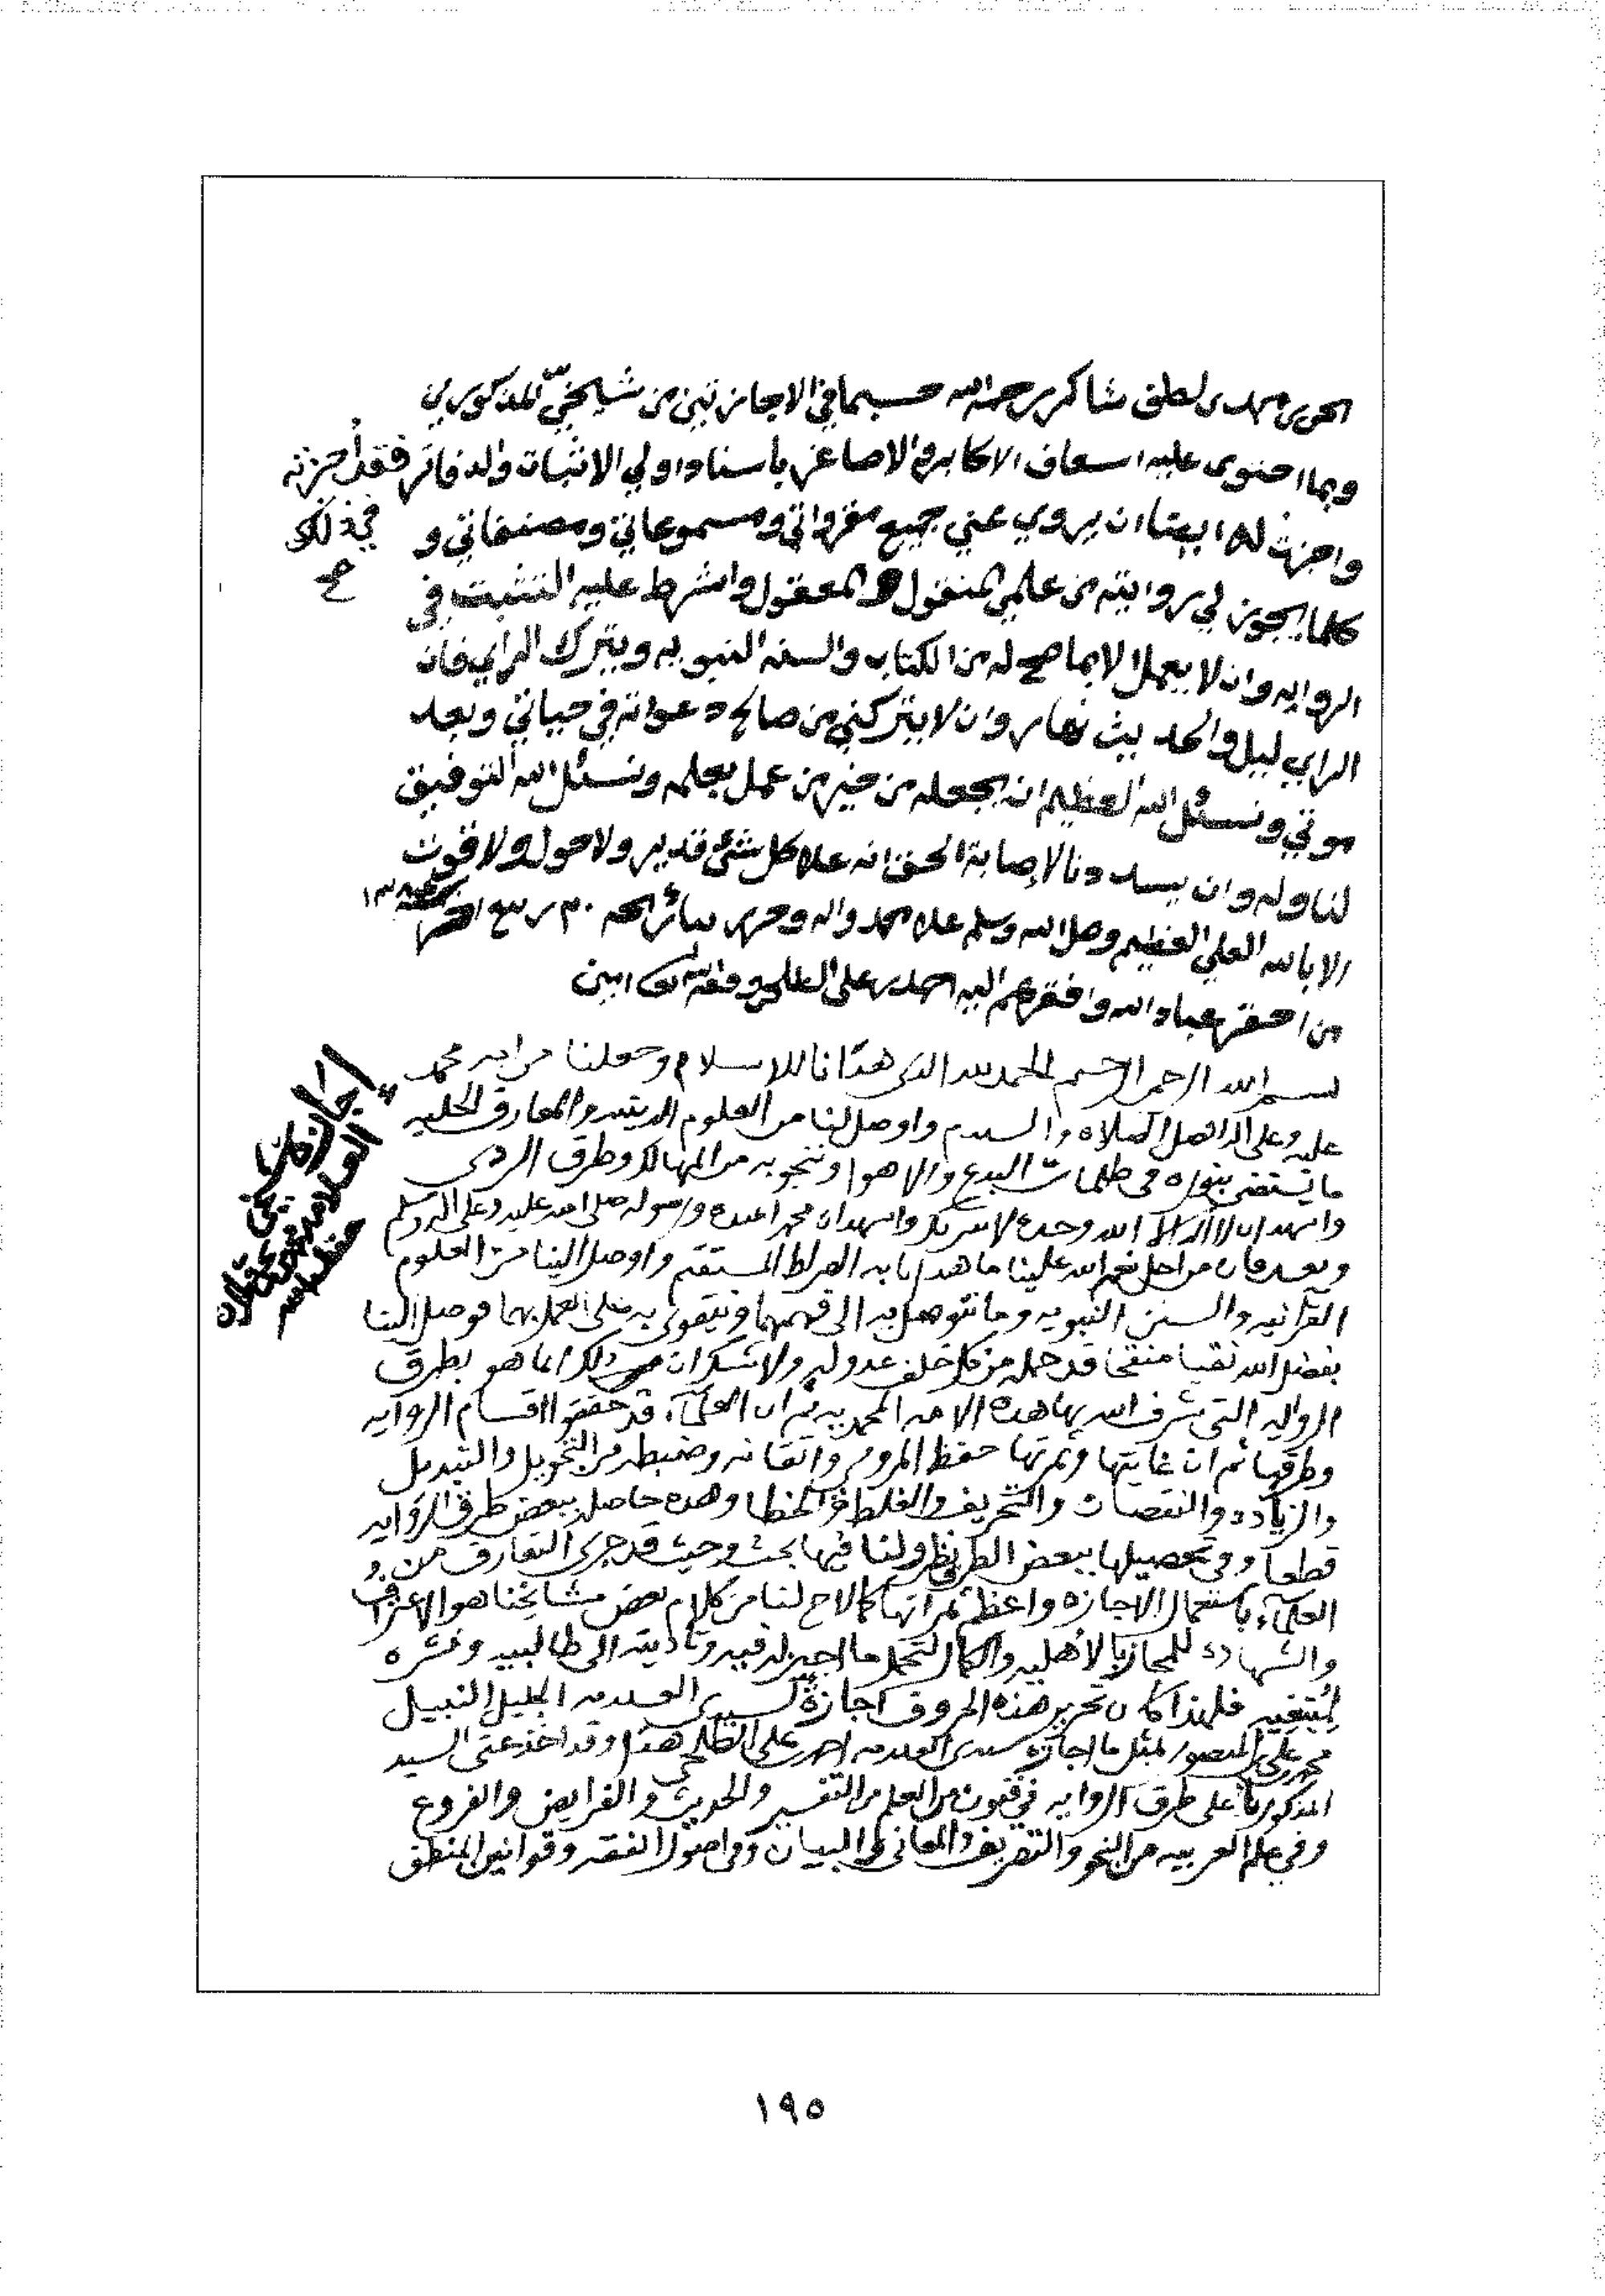 مهدي لطف شاكر رحمه الله حسبما في الاجازتين من شيخيّ المذكورين
وبما احتوى عليه اسعاف الاكابر والاصاغر باسناد اولي الاثبات والدفاتر فقد أجزته
في ذلك
صح
واجزت له ايضا ان يروي عني جميع مقرواتي ومسموعاتي ومصنفاتي و
كلما يجوز لي روايته من علمي المنقول والمعقول واشرط عليه التثبت في
الروايه وان لا يعمل الا بما صح له من الكتاب والسنه النبويه ويترك الراي فان
الراي ليل والحديث نهار وان لا يتركني من صالح دعواته في حياتي وبعد
موتي ونسئل الله العظيم ان يجعله من خير من عمل بعلمه ونسئل الله التوفيق
لنا وله وان يسددنا لإصابة الحق انه علا كل شئ قدير ولا حول ولا قوت
الا بالله العلي العظيم وصل الله وسلم علا محمد واله وحرر ٣٠ ربيع
من احقر عباد الله وافقرهم اليه احمد علي الطلحي وفقه الله امين
بسم الله الرحمن الرحيم الحمد لله الذي هدانا للاسلام وجعلنا من امة محمد
عليه وعلى اله افضل الصلاه والسلام واوصل لنا من العلوم الدينيه والمعارف الجليه
ما نستضئ بنوره في ظلمات البدع والاهوا وننجو به من المهالك وطرق الردى
واشهد ان لا اله الا الله وحده لا شريك له واشهد ان محمدا عبده ورسوله صلى الله عليه وعلى اله وسلم
وبعد فان من اجل نعم الله علينا ما هدانا به الصراط المستقيم واوصل الينا من العلوم
القرآنيه والسنن النبويه وما نتوصل به الى فهمهما ونتقوى به على العمل بهما فوصل الينا
بفضل الله نقيا منقحا قد حمله من كل خلف عدوله ولا شك ان ذلك انما هو بطرق
الروايه التي شرف الله بها هذه الامه المحمديه ثم ان العلمآء قد حققوا اقسام الروايه
وطرقها ثم ان غايتها وثمرتها حفظ المروي واتقانه وضبطه من التحويل والتبديل
والزياده والنقصان والتحريف والغلط والخطا وهذه حاصله ببعض طرق الروايه
قطعا وفي تحصيلها ببعض الطرق نظر ولنا فيها بحث وحيث قد جرى التعارف من
العلمآء باستعمال الاجازه واعظم ثمراتها كما لاح لنا من كلام بعض مشائخنا هو الاعتراف
والشهاده للمجاز بالأهليه والكمال لتحمل ما اجيز له فيه وتأديته الى طالبيه ونشره
لمبتغيه فلهذا كان تحرير هذه الحروف اجازة لسيدي العلامه الجليل النبيل
محمد علي المنصور بمثل ما اجازه سيدي العلامه احمد علي الطلحي هذا وقد اخذ عني السيد
المذكور على طرق الروايه في فنون من العلم من التفسير والحديث والفرايض والفروع
وفي علم العربيه من النحو والتصريف والمعاني والبيان وفي اصول الفقه وقوانين المنطق
١٩٥